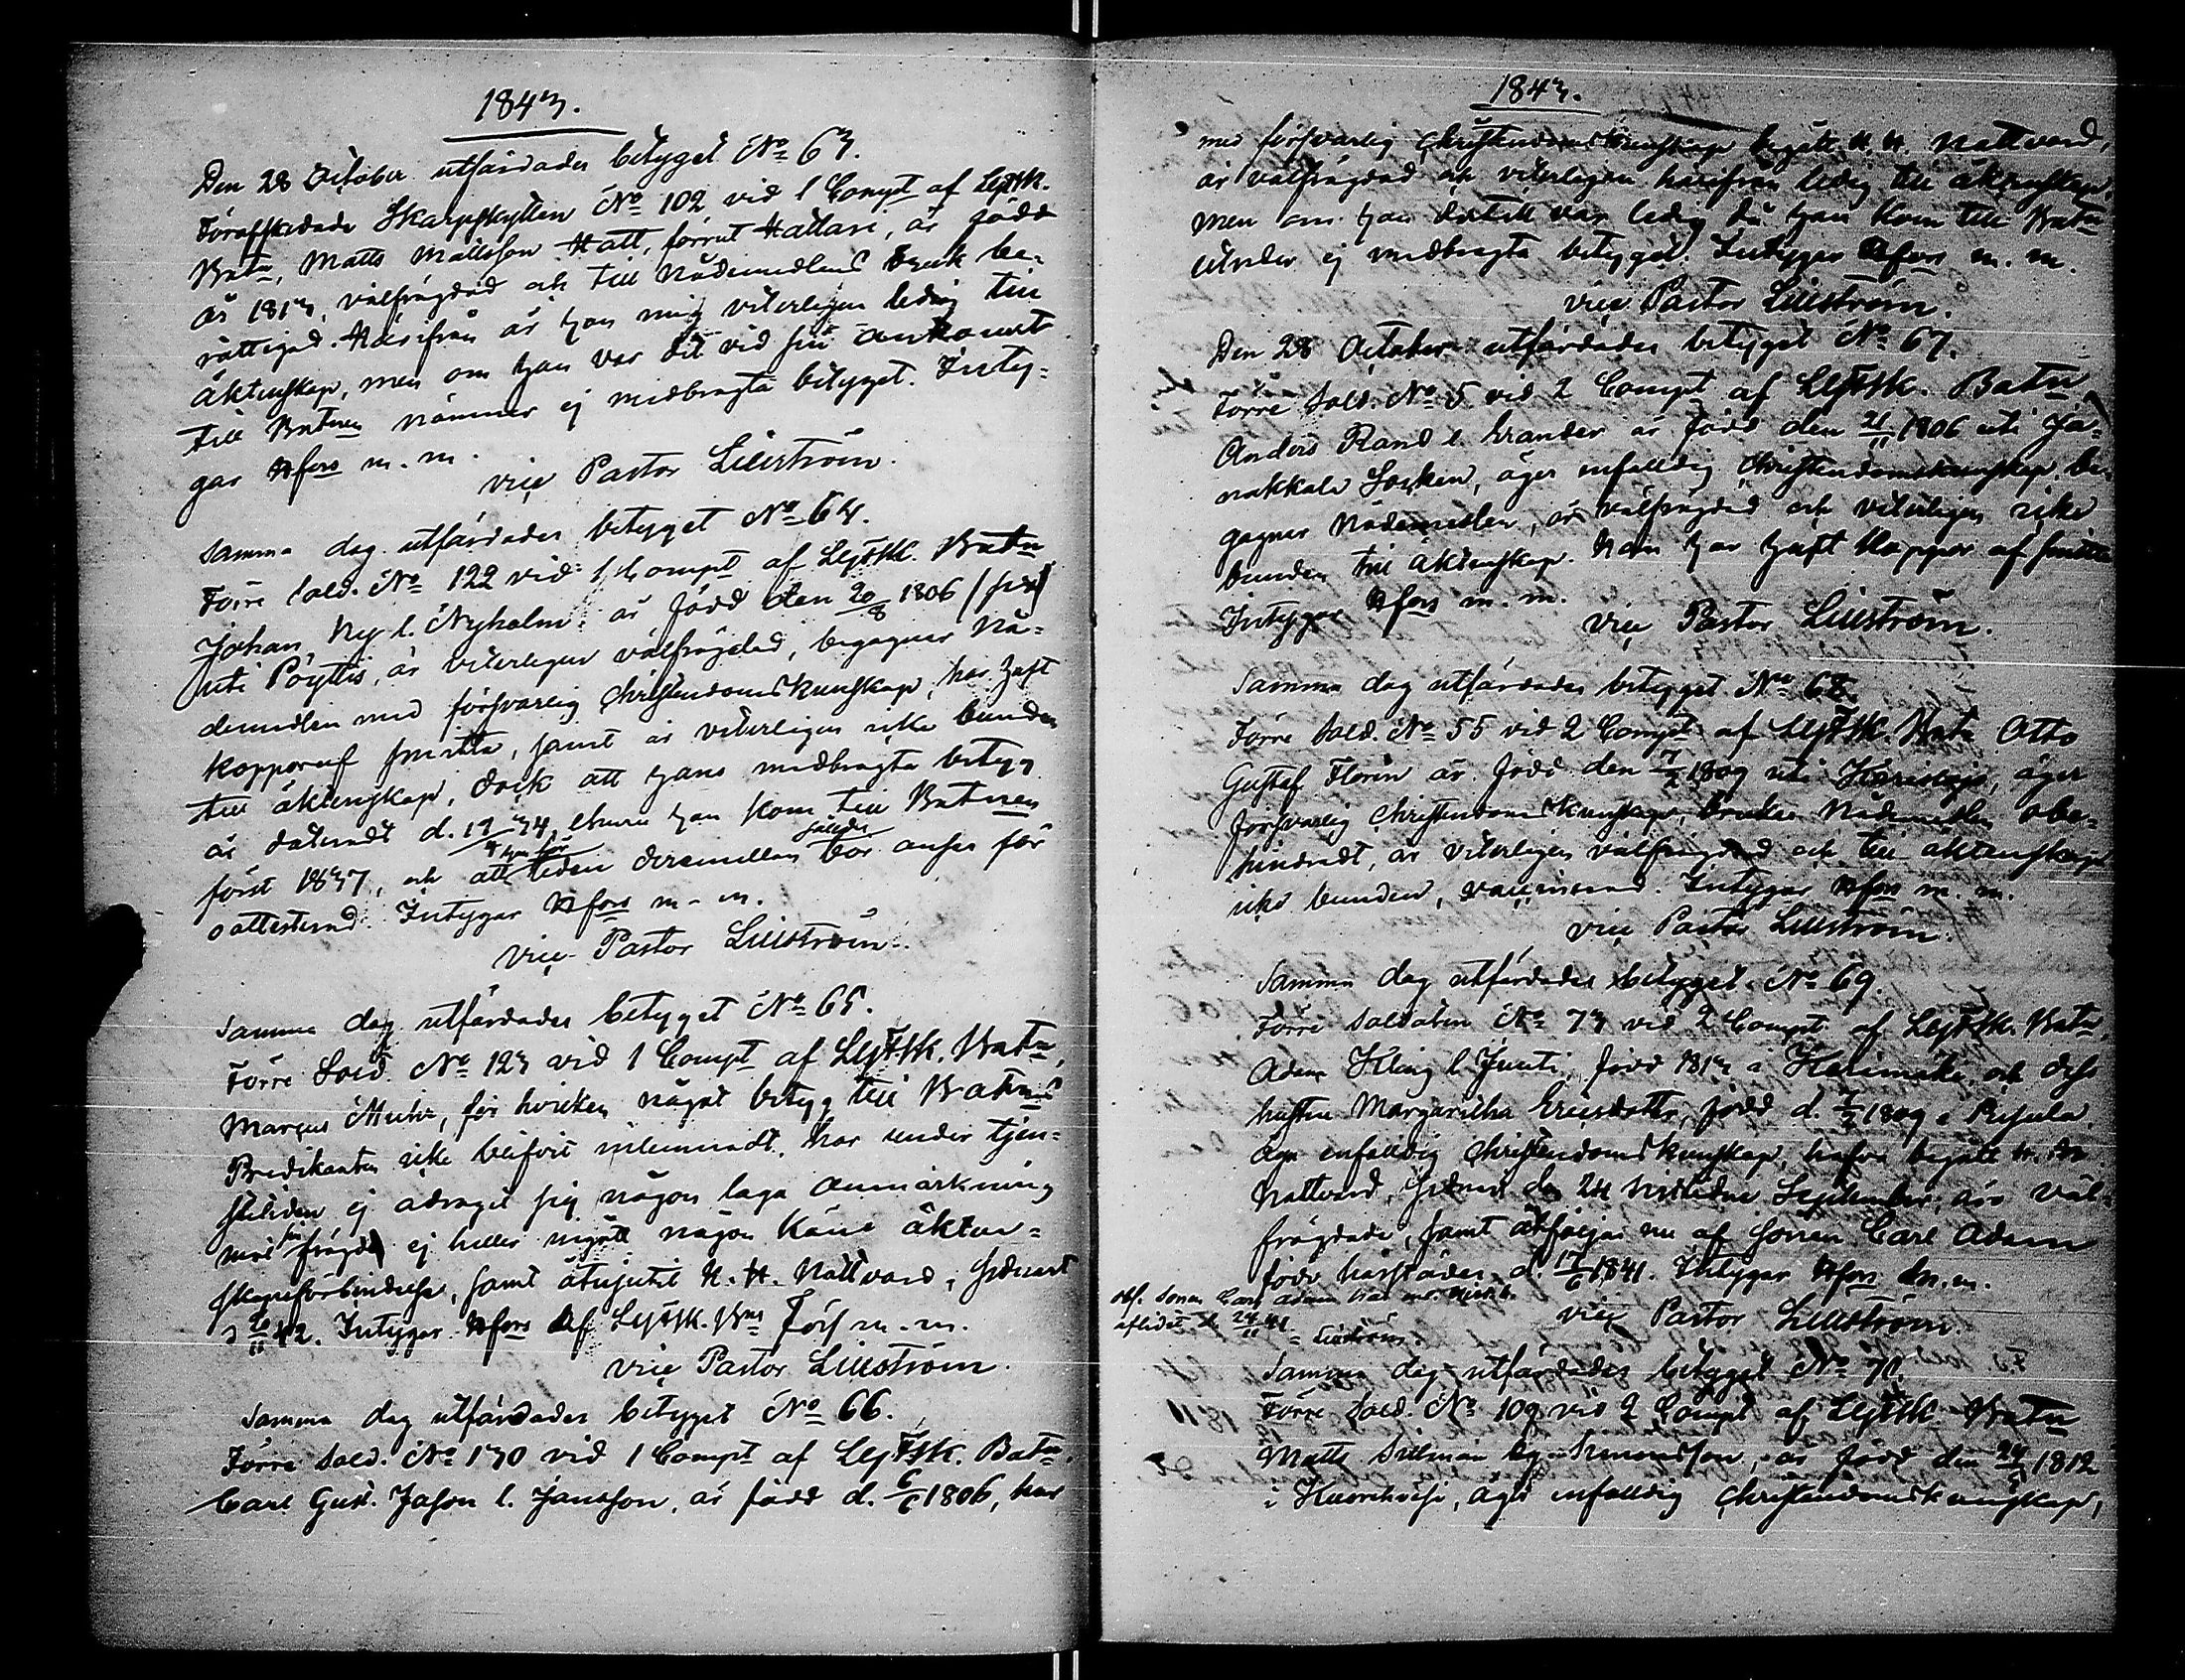 1843.
Den 28 October utfärdades betyget No 63.
Förafskedade Skarpskytten No 102 vid 1 Compt af LifFSk.
Batn, Matts Mattsson Hatt, förrut Hattari, är född
år 1813, välfrägdad och till Nådemedlens bruk be-
rättigad. Härifrån är han mig veterligen ledig till
äktenskap, men om han var det vid sin ankomst
till Batnen nämner ej medbragta betyget. Inty-
gar Hfors m. m.
vice Pastor Lillström.
Samma dag utfärdades betyget No 64.
Förre Sold. No 122 vid 1 Compt af LifFSk. Batn
Johan Ny l. Nyholm är född den 20/8 1806 (sex)
uti Pöyttis, är veterligen välfrägdad, begagnar Nå-
demedlen med försvarlig Christendomskunskap, har haft
koppor af smitta, samt är veterligen icke bunden
till äktenskap, dock att hans medbragta betyg
är dateradt d. 34, ehuru han kom till Batnen
först 1837, och att tiden deremellan således bör anses för
oattesterad. Intygar Hfors m. m.
vice Pastor Lillström.
Samma dag utfärdades betyget No 65.
Förre Sold. No 123 vid 1 Compt af LifFSk. Batn,
Marcus Muhr, för hvilken något betyg till Batns
Predikanten icke blifvit inlemnadt, har under tjen-
stetiden ej ådragit sig någon laga anmärkning
mot sin frägd, ej heller ingått någon känd äkten-
skapsförbindelse, samt åtnjutit H. H. Nattvard, sednast
d 20/11 42. Intygar Hfors af LifFSk. Bns Förs m. m.
vice Pastor Lillström.
Samma dag utfärdades betyget No 66.
Förre Sold. No 130 vid 1 Compt af LifFSk. Batn.
Carl Gust. Jason l. Jansson, är född d. 6/6 1806, har
1843.
med försvarlig Christendomskunskap begått H. H. Nattvard,
är välfrägdad och veterligen härifrån ledig till äktenskap,
men om han dertill var ledig då han kom till Batn
utreder ej medbragta betyget. Intygar Hfors m. m.
vice Pastor Lillström.
Den 28 October utfärdades betyget No 67.
Förre Sold. No 5 vid 2 Compt af LifFSk. Batn
Anders Rand l. Grander är född den 21/11 1806 uti Ja-
nakkala Socken, äger enfaldig Christendomskunskap, be-
gagnar Nådemedlen, är välfrägdad och veterligen icke
bunden till äktenskap. Han har haft koppor af smitta
Intygar Hfors m. m.
vice Pastor Lillström.
Samma dag utfärdades betyget No 68.
Förre Sold. No 55 vid 2 Compt af LifFSk. Batn Otto
Gustaf Florin är född den 7/2 1809 uti Karislojo, äger
försvarlig Christendomskunskap, brukar Nådemedlen obe-
hindradt, är veterligen välfrägdad och till äktenskap
icke bunden, vaccinerad. Intygar Hfors m. m.
vice Pastor Lillström.
Samma dag utfärdades betyget No 69.
Förre Soldaten No 73 vid 2 Compt af LifFSk. Batn,
Adam Kling l. Junti, född 1813 i Kerimäki, och dess
hustru Margaretha Ericsdotter, född d. 1809 i
äga enfaldig Christendomskunskap, hafva begått H. H.
Nattvard, sednast den 24 sistledne September, äro väl-
frägdade, samt åtföljas nu af sonen Carl Adam
född härstädes d. 17/6 1841. Intygar Hfors m. m.
Obs. Sonen Carl Adam har
aflidit d. 24/11 41 Lillström
vice Pastor Lillström.
Samma dag utfärdades betyget No 70.
Förre Sold. No 109 vid 2 Compt af LifFSk. Batn
Matts Sillman Simonsson, är född den 24 1812
i Kuorehvesi, äger enfaldig Christendomskunskap,